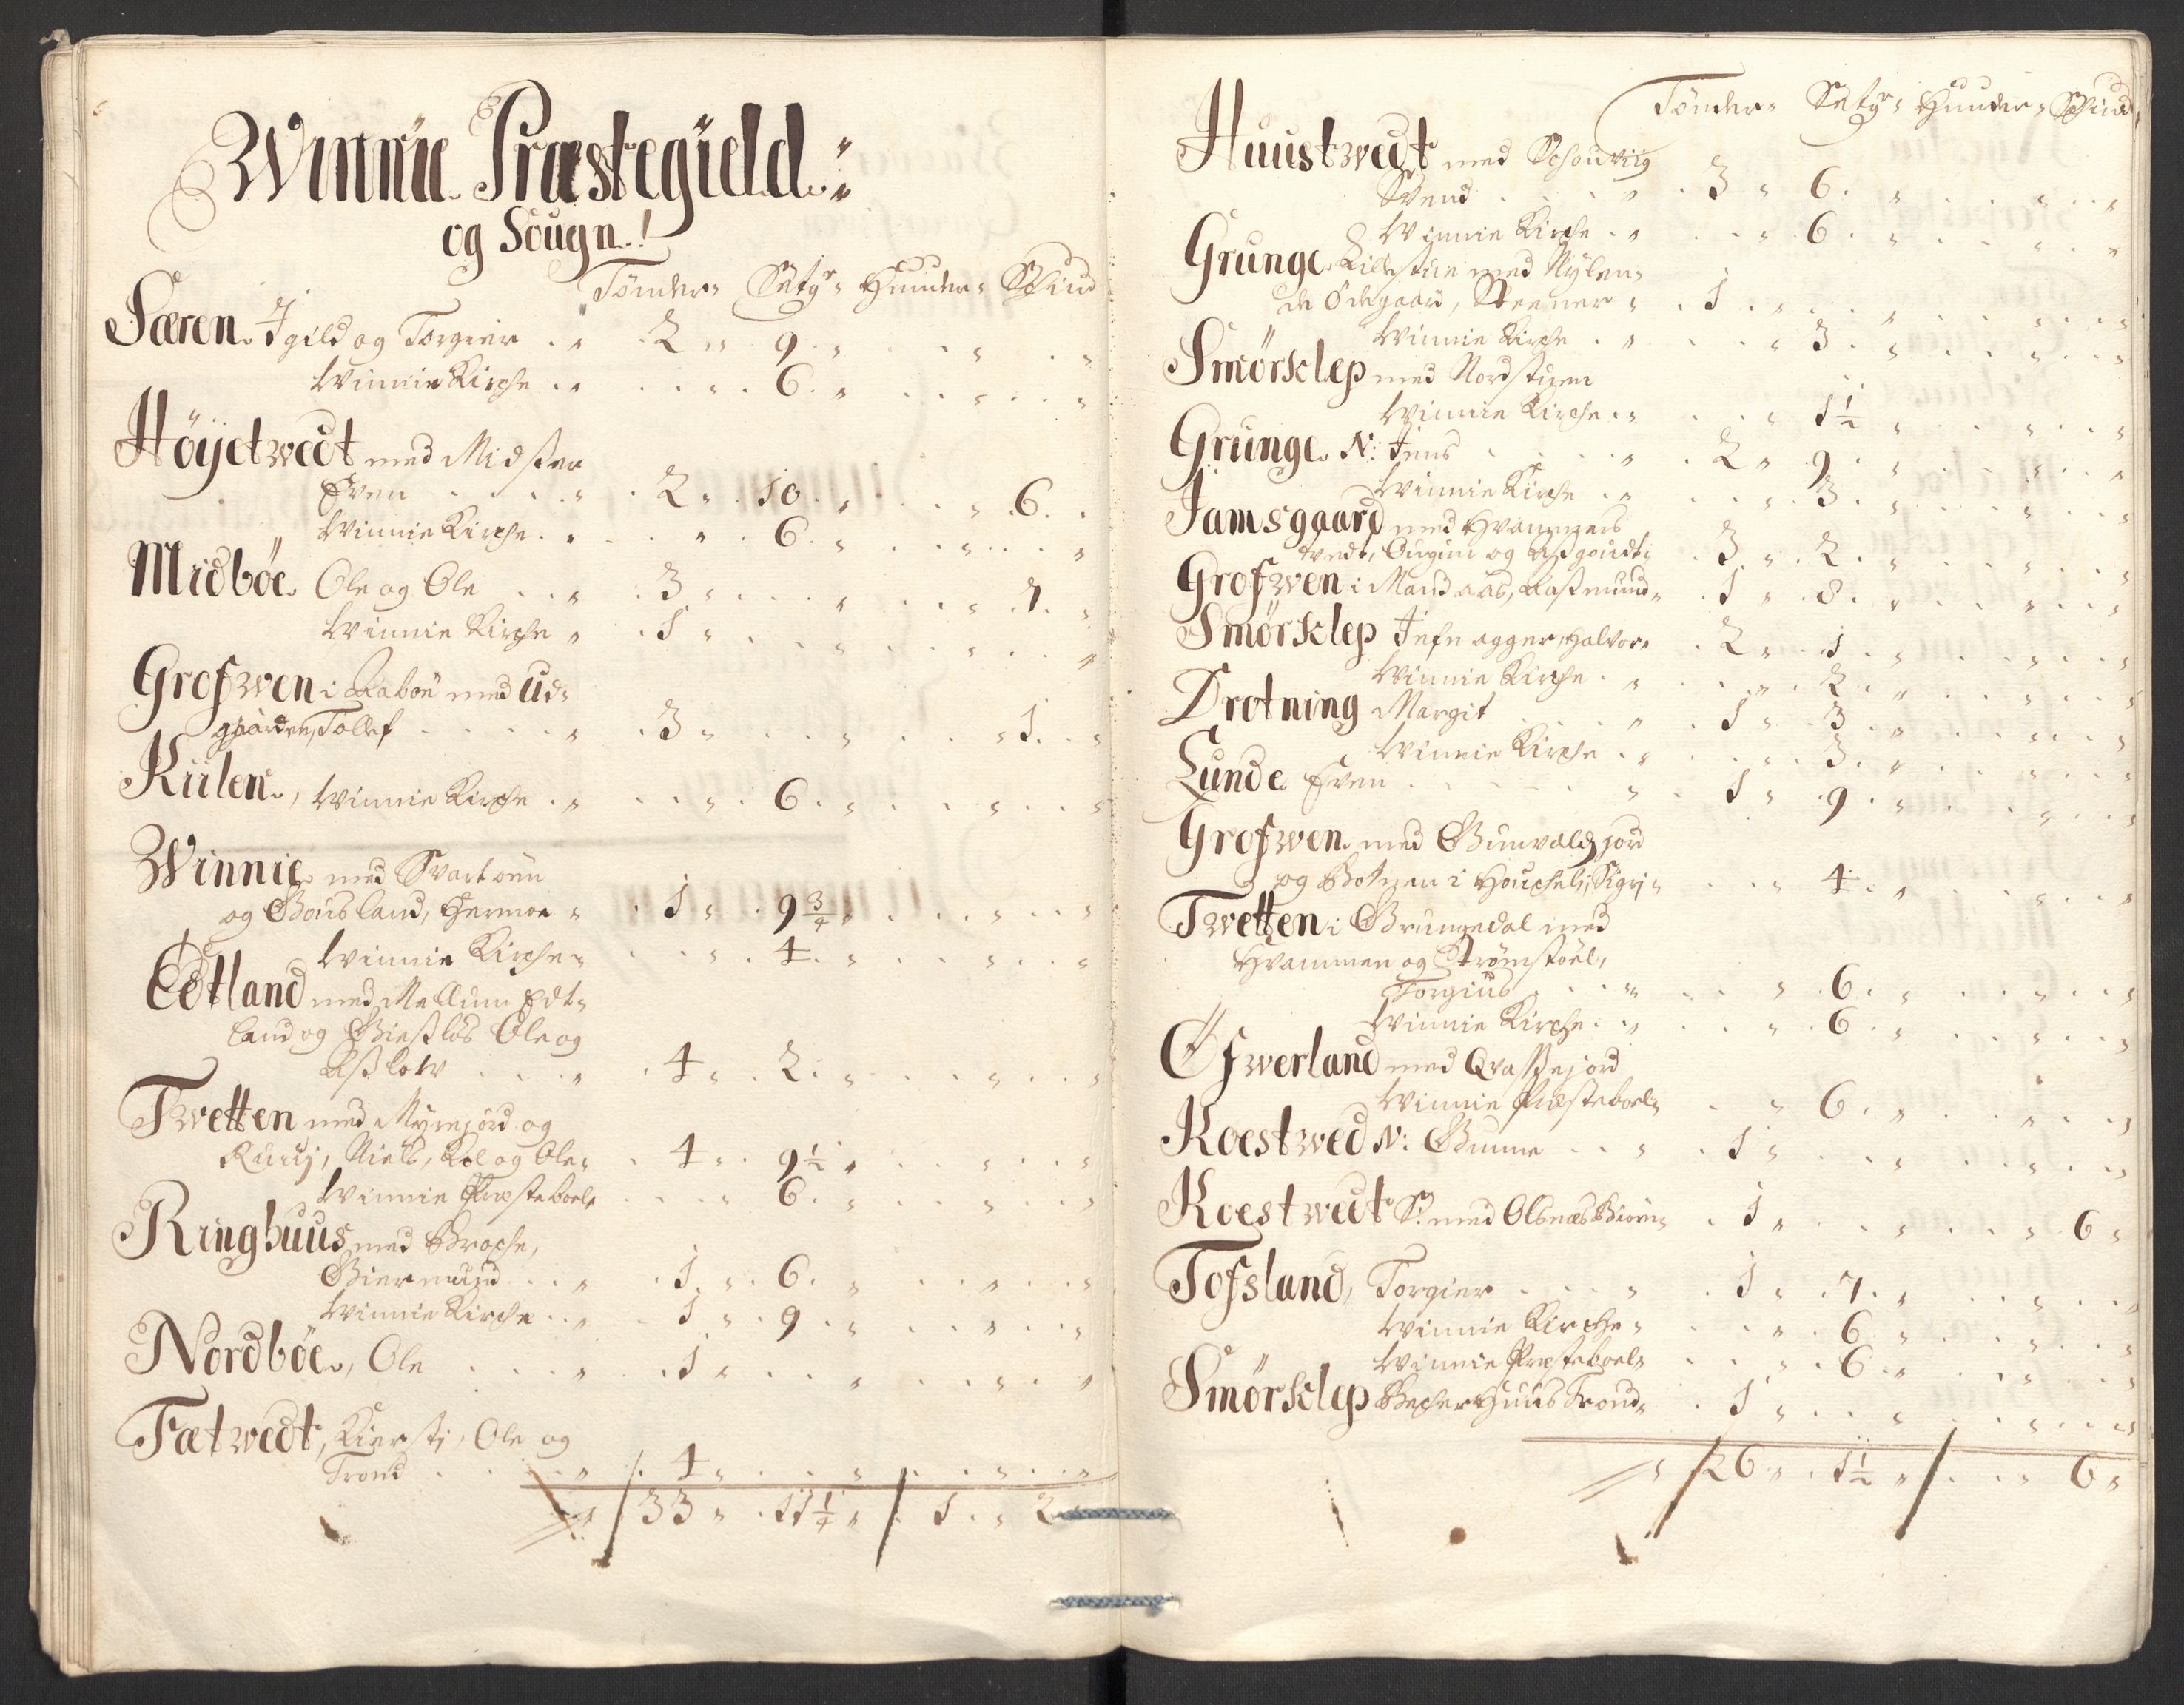 Winnie Præstegield
og Sougn.
Tønder Sety Huuder Skind
Særen. Igild og Torgier 2 9
Winnie Kirche 6
Höijetwedt med Midster
Even 2 10 6
Winnie Kirche 6
Midböe. Ole og Ole 3 7
Winnie Kirche 1
Grofwen i Raboe med Ud-
gaarden, Tollef 3 1
Kiilen, Winnie Kirche 6
Winnie med Svartoen
og Bousland, Hermoe 1 9 3/4
Winnie Kirche 4
Edtland med Mellum Edt-
land og Giesløs Ole og
Aslow 4 2
Twetten med Myrejord og
Ruuj, Niels, Kol og Ole 4 9 1/2
Winnie Præsteboel 6
Ringhuus med Broche,
Giermund 1 6
Winnie Kirche 1 9
Nordböe, Ole 1
Fætwedt, Kiersti, Ole og
Trond 4
33 11 1/4 1 2
Tønder Sety Huuder Skind
Huustwedt med Schouviig
Svend 3 6
Winnie Kirche 6
Grunge Lillestue med Nylen-
de Ödegaard, Steener 1
Winnie Kirche 3
Smörklep med Nordstuen
Winnie Kirche 1 1/2
Grunge N: Jens 2 9
Winnie Kirche 3
Jamsgaard med Hvammers
vedt, Ougun og Asgoudt 3 2
Grofwen i Mandaas, Aasmund 1 8
Smörklep Halvor 2 1
Winnie Kirche 2
Drotning Margit 1 3
Winnie Kirche 3
Lunde Even 1 9
Grofwen med Gunvaldsjord
og Botnen i Houcheli, Sigri 4
Twetten i Grungedal med
Hvammen og Strømstöel,
Torgius 6
Winnie Kirche 6
Öfwerland med Qvassejord
Winnie Præsteboel 6
Koestwed N: Gunne 1
Koestwedt S: med Olsnæs Biörn 1 6
Tofsland, Torgier 1 7
Winnie Kirche 6
Winnie Præsteboel 6
Smörklep Trond 1
26 1 1/2 6